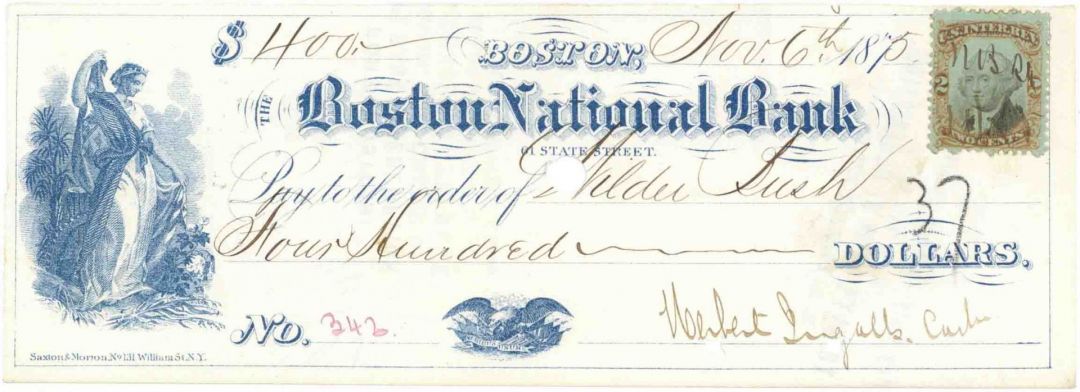 $ 400.— BOSTON, Nov. 6th 1875
THE Boston National Bank
61 STATE STREET.
Pay to the order of Wilder Lush
Four Hundred DOLLARS.
37
No. 342.
Herbert Ingalls. Cash
Saxton & Morton, No 131 William St. N.Y.
U.S. INTER. REV.
2
TWO CENTS